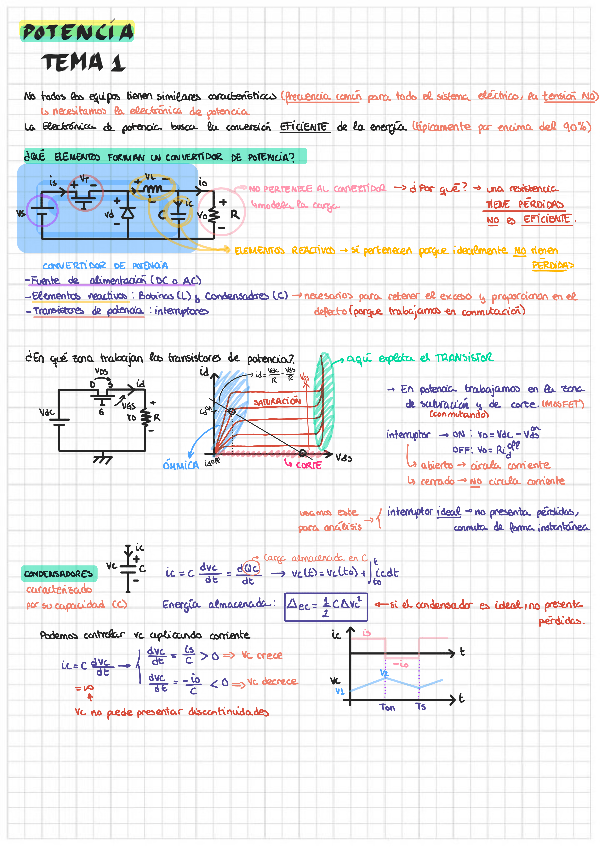 POTENCIA
TEMA 1
No todos los equipos tienen similares características (frecuencia común para todo el sistema eléctrico, la tensión NO)
↳ necesitamos la electrónica de potencia
La Electrónica de potencia busca la conversión EFICIENTE de la energía (típicamente por encima del 90%)
¿QUÉ ELEMENTOS FORMAN UN CONVERTIDOR DE POTENCIA?
is + VT - + VL - io
vs vd C ic Vo R
NO PERTENECE AL CONVERTIDOR → ¿Por qué? → una resistencia
↳ modela la carga
TIENE PÉRDIDAS
NO es EFICIENTE.
ELEMENTOS REACTIVOS → sí pertenecen porque idealmente NO tienen
PÉRDIDAS
CONVERTIDOR DE POTENCIA
- Fuente de alimentación (DC o AC)
- Elementos reactivos: Bobinas (L) y Condensadores (C) → necesarios para retener el exceso y proporcionan en el
- Transistores de potencia: interruptores
defecto (porque trabajamos en conmutación)
¿En qué zona trabajan los transistores de potencia?
aquí explota el TRANSISTOR
VDS
D S id
G VGS
Vdc Vo R
id
id = Vdc/R - Vds/R
SATURACIÓN
Vds
ÓHMICA
CORTE
→ En potencia trabajamos en la zona
de saturación y de corte. (MOSFET)
(conmutando)
interruptor → ON: vo = Vdc - Vds on
OFF: Vo = R id off
↳ abierto → circula corriente
↳ cerrado → NO circula corriente
usamos este
para análisis →
interruptor ideal → no presenta pérdidas,
conmuta de forma instantánea
CONDENSADORES
caracterizado
por su capacidad (C)
ic
+
Vc C
-
Carga almacenada en C
ic = C dvc/dt = dQc/dt → vc(t) = vc(to) + ∫ t to ic dt
Energía almacenada: Δec = 1/2 C Δvc² ← si el condensador es ideal, no presenta
pérdidas.
Podemos controlar vc aplicando corriente
ic = C dvc/dt →
dvc/dt = is/C > 0 ⇒ Vc crece
dvc/dt = -io/C < 0 ⇒ Vc decrece
= ∞
Vc no puede presentar discontinuidades
ic is
-io t
Vc V1 V2
Ton Ts t